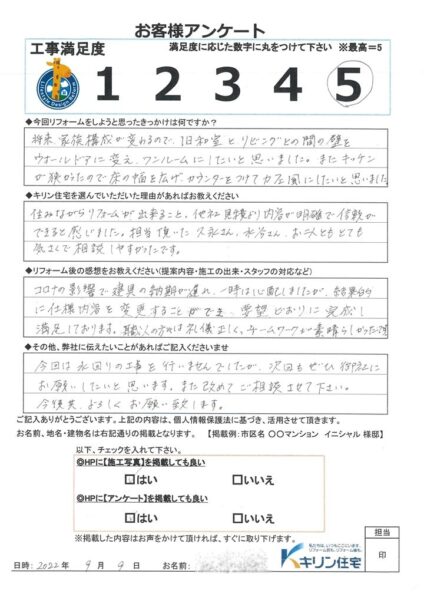 お客様アンケート
工事満足度
満足度に応じた数字に丸をつけて下さい ※最高＝5
1 2 3 4 5
◆今回リフォームをしようと思ったきっかけは何ですか？
将来、家族構成が変わるので、旧和室とリビングとの間の壁を
ウォールドアに変え、ワンルームにしたいと思いました。またキッチン
が狭かったので床の幅を広げ、カウンターをつけてカフェ風にしたいと思いました
◆キリン住宅を選んでいただいた理由があればお教えください
住みながらリフォームが出来ること、他社見積より内容が明確で信頼が
できると感じました。担当頂いた久永さん、水谷さん、お二人ともとても
気さくで相談しやすかったです。
◆リフォーム後の感想をお教えください（提案内容・施工の出来・スタッフの対応など）
コロナの影響で建具の納期が遅れ、一時は心配しましたが、結果的
に仕様内容を変更することができ、希望どおりに完成し
満足しております。職人の方々は礼儀正しく、チームワークが素晴らしかったです
◆その他、弊社に伝えたいことがあればご記入くださいませ
今回は水回りの工事を行いませんでしたが、次回もぜひ御社に
お願いしたいと思います。また改めてご相談させて下さい。
今後共、よろしくお願い致します。
ご記入ありがとうございます。上記の内容は、個人情報保護法に基づき、活用させて頂きます。
お名前、地名・建物名は右記通りの掲載となります。 【掲載例：市区名 〇〇マンション イニシャル 様邸】
以下、チェックを入れて下さい。
◎HPに【施工写真】を掲載しても良い
□はい □いいえ
◎HPに【アンケート】を掲載しても良い
□はい □いいえ
※掲載した内容はお声をかけて頂ければ、すぐに取り下げます。
担当
印
キリン住宅
日時：2022年 9月 9日 お名前：